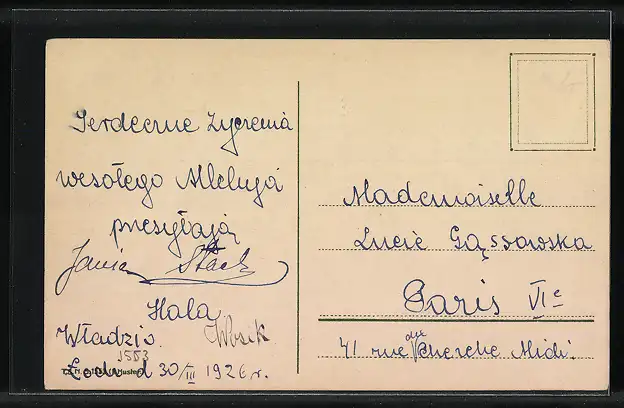 Serdeczne życzenia
wesołego Alleluja
przesyłają
Jania Stach
Hala
Władzio. Włosik
1553
Łódź d 30/III 1926 r.
Mademoiselle
Lucie Gąssowska
Paris VIe
41 rue du Cherche Midi.